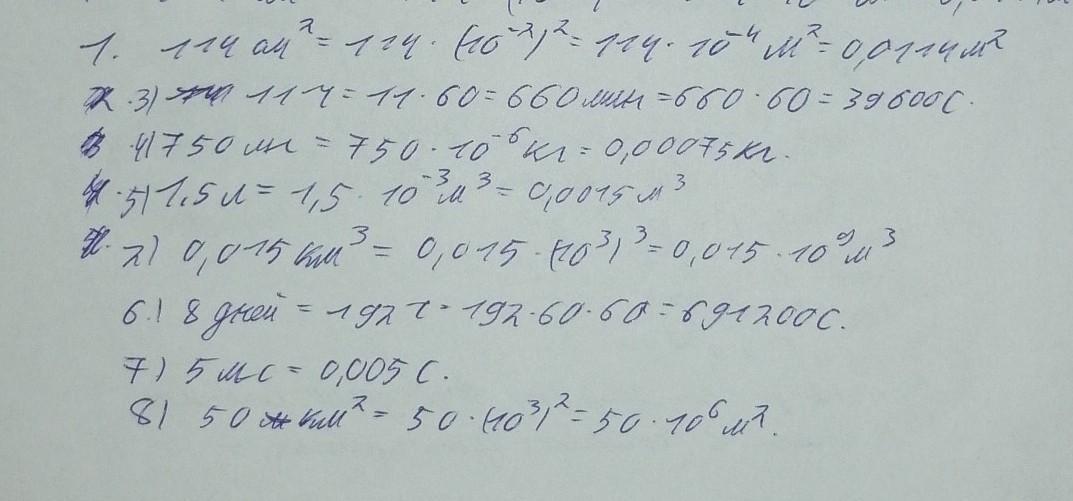 1. 114 см² = 114 · (10⁻²)² = 114 · 10⁻⁴ м² = 0,0114 м²
3) 11 ч = 11 · 60 = 660 мин = 660 · 60 = 39600 С.
4) 750 мг = 750 · 10⁻⁶ кг = 0,00075 кг.
5) 1,5 л = 1,5 · 10⁻³ м³ = 0,0015 м³
2) 0,015 км³ = 0,015 · (10³)³ = 0,015 · 10⁹ м³
6) 8 дней = 192 ч = 192 · 60 · 60 = 691200 С.
7) 5 мс = 0,005 С.
8) 50 км² = 50 · (10³)² = 50 · 10⁶ м².